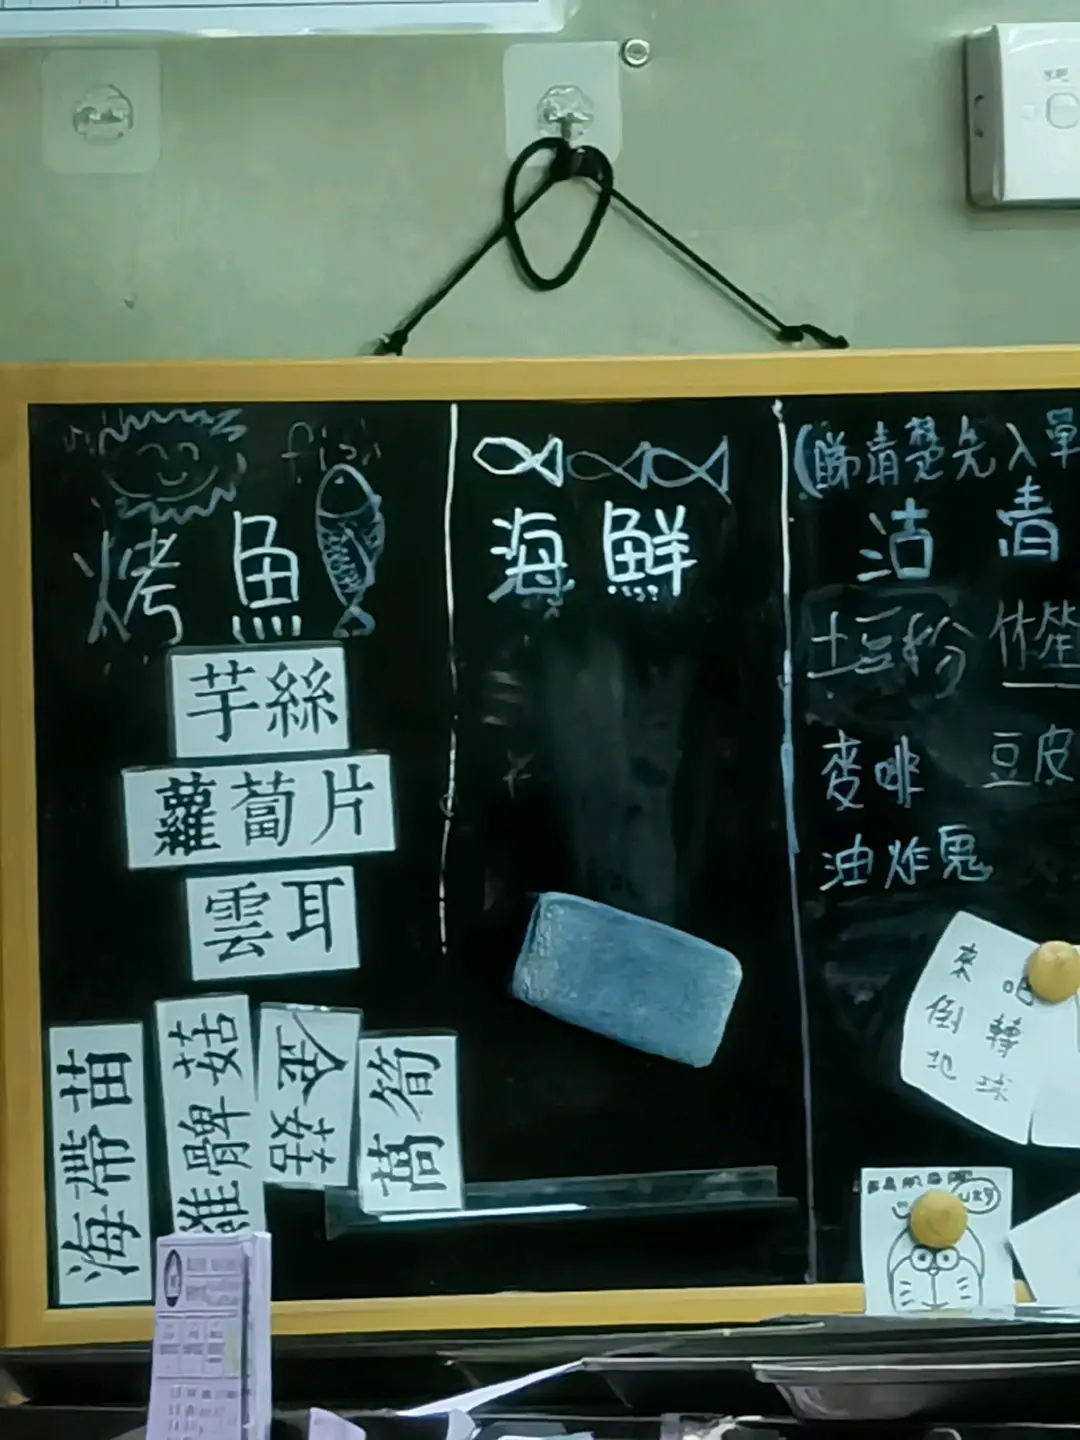 fish
烤魚
芋絲
蘿蔔片
雲耳
海帶苗
雞髀菇
金菇
萵筍
海鮮
(睇清楚先入單
沽清
土豆粉
豆皮
麥啡
油炸鬼
來吧
倒轉
地球